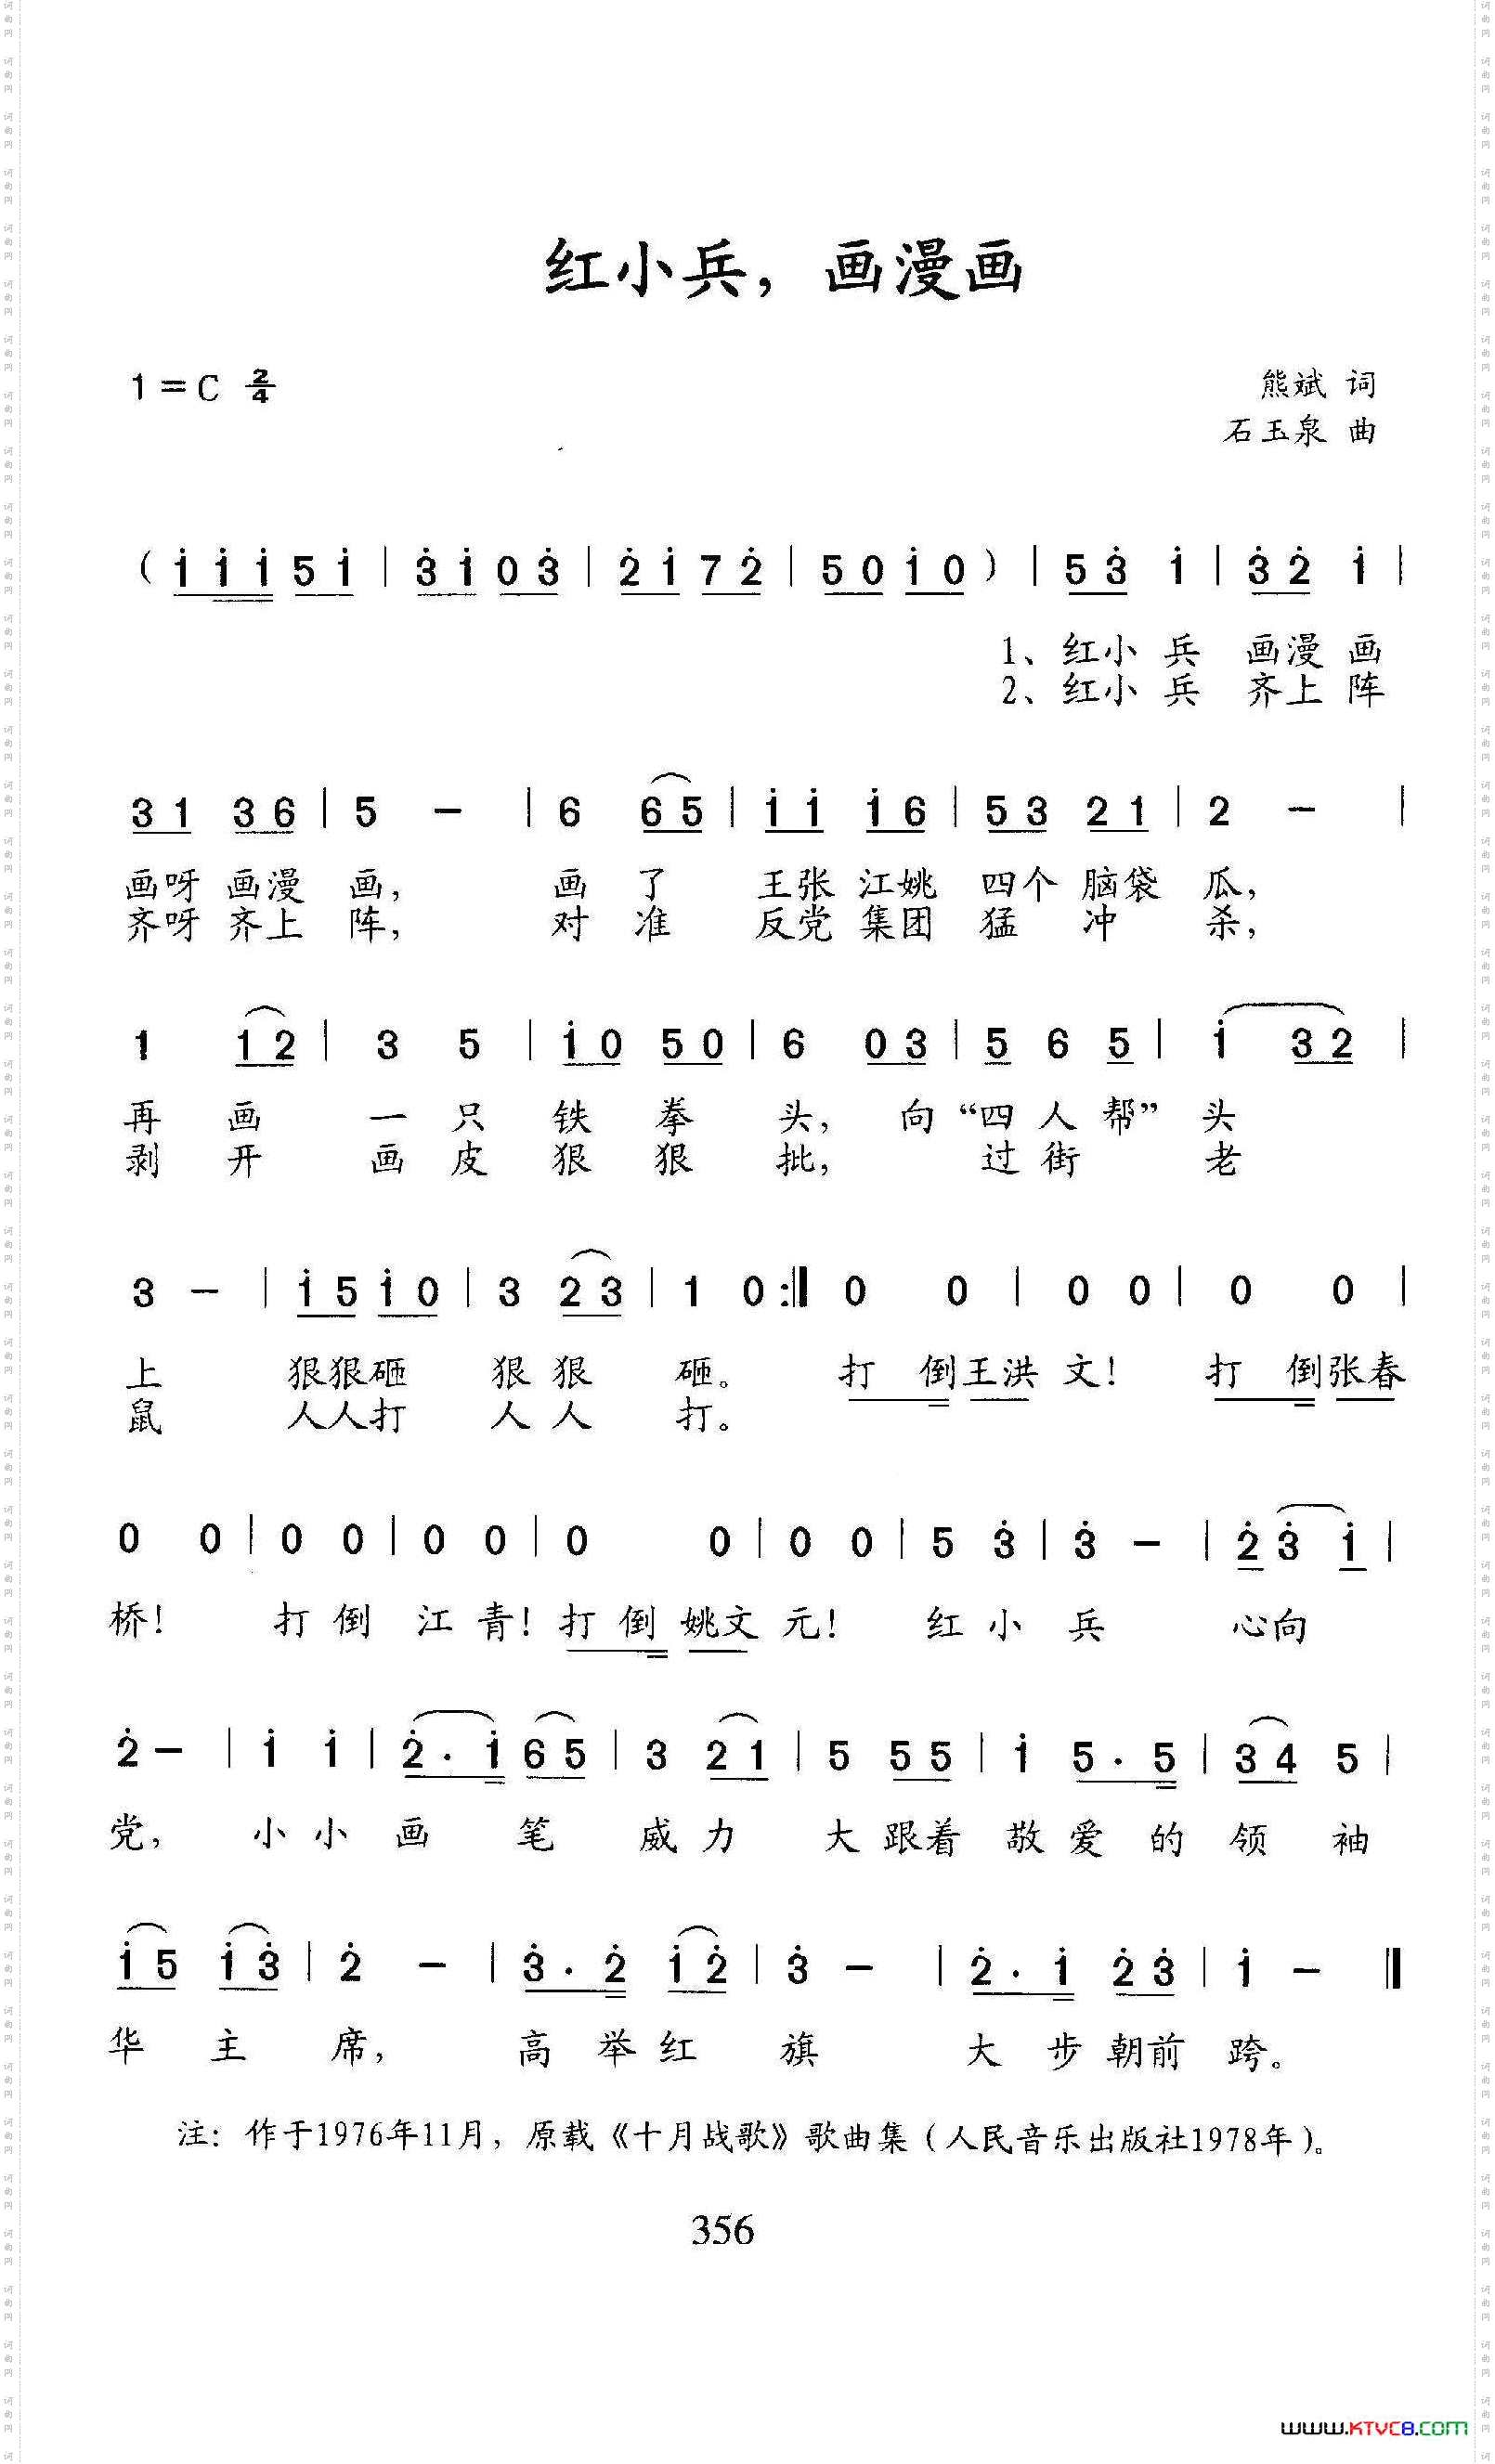 红小兵，画漫画
1=C 2/4
熊斌 词
石玉泉 曲
( i i i 5 i | 3̇ i 0 3̇ | 2̇ i 7 2̇ | 5 0 i 0 ) | 5 3̇ i | 3̇ 2̇ i |
1、红小 兵 画漫 画
2、红小 兵 齐上 阵
3 1 3 6 | 5 － | 6 6 5 | i i i 6 | 5 3 2 1 | 2 － |
画呀 画漫 画， 画 了 王张 江姚 四个 脑袋 瓜，
齐呀 齐上 阵， 对 准 反党 集团 猛 冲 杀，
1 1 2 | 3 5 | i 0 5 0 | 6 0 3 | 5 6 5 | i 3 2 |
再 画 一 只 铁 拳 头， 向“四 人 帮”头
剥 开 画 皮 狠 狠 批， 过 街 老
3 － | i 5 i 0 | 3 2 3 | 1 0 :‖ 0 0 | 0 0 | 0 0 |
上 狠狠砸 狠 狠 砸。 打 倒王洪 文！ 打 倒张春
鼠 人人打 人 人 打。
0 0 | 0 0 | 0 0 | 0 0 | 0 0 | 5 3̇ | 3̇ － | 2̇ 3̇ i |
桥！ 打 倒 江 青！打 倒 姚文 元！ 红 小 兵 心向
2̇ － | i i | 2̇ . i 6 5 | 3 2 1 | 5 5 5 | i 5 . 5 | 3 4 5 |
党， 小 小 画 笔 威 力 大 跟着 敬 爱 的 领 袖
i 5 i 3̇ | 2̇ － | 3̇ . 2̇ i 2̇ | 3̇ － | 2̇ . i 2̇ 3̇ | i － ‖
华 主 席， 高 举 红 旗 大 步 朝前 跨。
注：作于1976年11月，原载《十月战歌》歌曲集（人民音乐出版社1978年）。
356
www.KTVC8.com